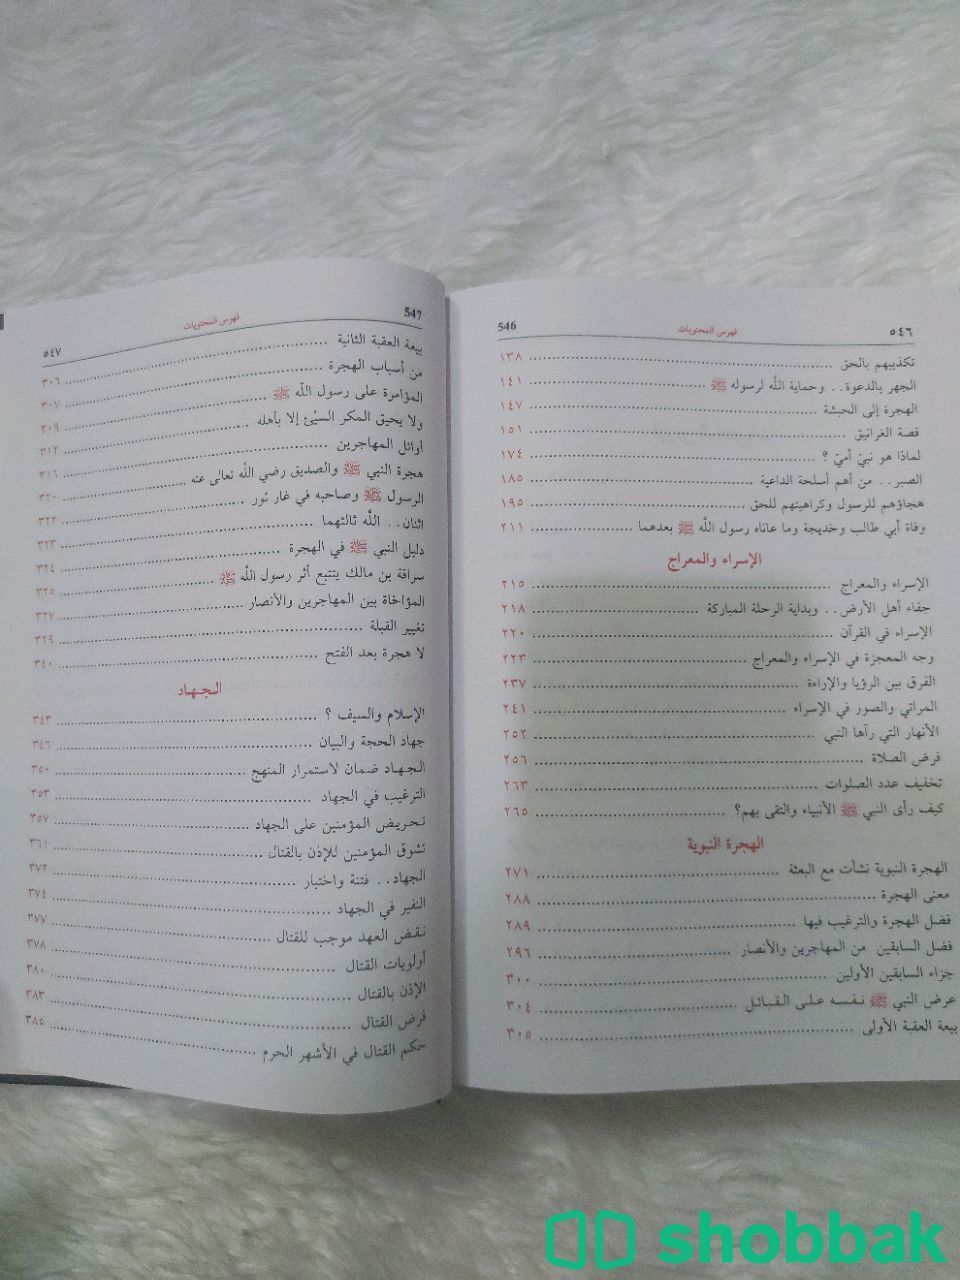 ٥٤٦ فهرس المحتويات 546
تكذيبهم بالحق ١٣٨
الجهر بالدعوة.. وحماية الله لرسوله ﷺ ١٤١
الهجرة إلى الحبشة ١٤٧
قصة الغرانيق ١٥١
لماذا هو نبيّ أميّ ؟ ١٧٤
الصبر.. من أهم أسلحة الداعية ١٨٥
هجاؤهم للرسول وكراهيتهم للحق ١٩٥
وفاة أبي طالب وخديجة وما عاناه رسول الله ﷺ بعدهما ٢١١
الإسراء والمعراج
الإسراء والمعراج ٢١٥
جفاء أهل الأرض.. وبداية الرحلة المباركة ٢١٨
الإسراء في القرآن ٢٢٠
وجه المعجزة في الإسراء والمعراج ٢٢٣
الفرق بين الرؤيا والإراءة ٢٣٧
المرائي والصور في الإسراء ٢٤١
الأنهار التي رآها النبي ٢٥٢
فرض الصلاة ٢٥٦
تخفيف عدد الصلوات ٢٦٣
كيف رأى النبي ﷺ الأنبياء والتقى بهم؟ ٢٦٥
الهجرة النبوية
الهجرة النبوية نشأت مع البعثة ٢٧١
معنى الهجرة ٢٨٨
فضل الهجرة والترغيب فيها ٢٨٩
فضل السابقين من المهاجرين والأنصار ٢٩٦
جزاء السابقين الأولين ٣٠٠
عرض النبي ﷺ نفسه على القبائل ٣٠٤
بيعة العقبة الأولى ٣٠٥
547 فهرس المحتويات ٥٤٧
بيعة العقبة الثانية ٣٠٦
من أسباب الهجرة ٣٠٧
المؤامرة على رسول الله ﷺ ٣٠٩
ولا يحيق المكر السيّئ إلا بأهله ٣١٢
أوائل المهاجرين ٣١٦
هجرة النبي ﷺ والصديق رضي الله تعالى عنه ٣٢٠
الرسول ﷺ وصاحبه في غار ثور ٣٢٢
اثنان.. الله ثالثهما ٣٢٣
دليل النبي ﷺ في الهجرة ٣٢٤
سراقة بن مالك يتتبع أثر رسول الله ﷺ ٣٢٥
المؤاخاة بين المهاجرين والأنصار ٣٢٧
تغيير القبلة ٣٢٩
لا هجرة بعد الفتح ٣٤٠
الجهاد
الإسلام والسيف ؟ ٣٤٣
جهاد الحجة والبيان ٣٤٦
الجهاد ضمان لاستمرار المنهج ٣٥٠
الترغيب في الجهاد ٣٥٣
تحريض المؤمنين على الجهاد ٣٥٧
تشوق المؤمنين للإذن بالقتال ٣٦١
الجهاد.. فتنة واختبار ٣٧٢
النفير في الجهاد ٣٧٤
نقض العهد موجب للقتال ٣٧٧
أولويات القتال ٣٧٨
الإذن بالقتال ٣٨٠
فرض القتال ٣٨٣
حكم القتال في الأشهر الحرم ٣٨٥
shobbak